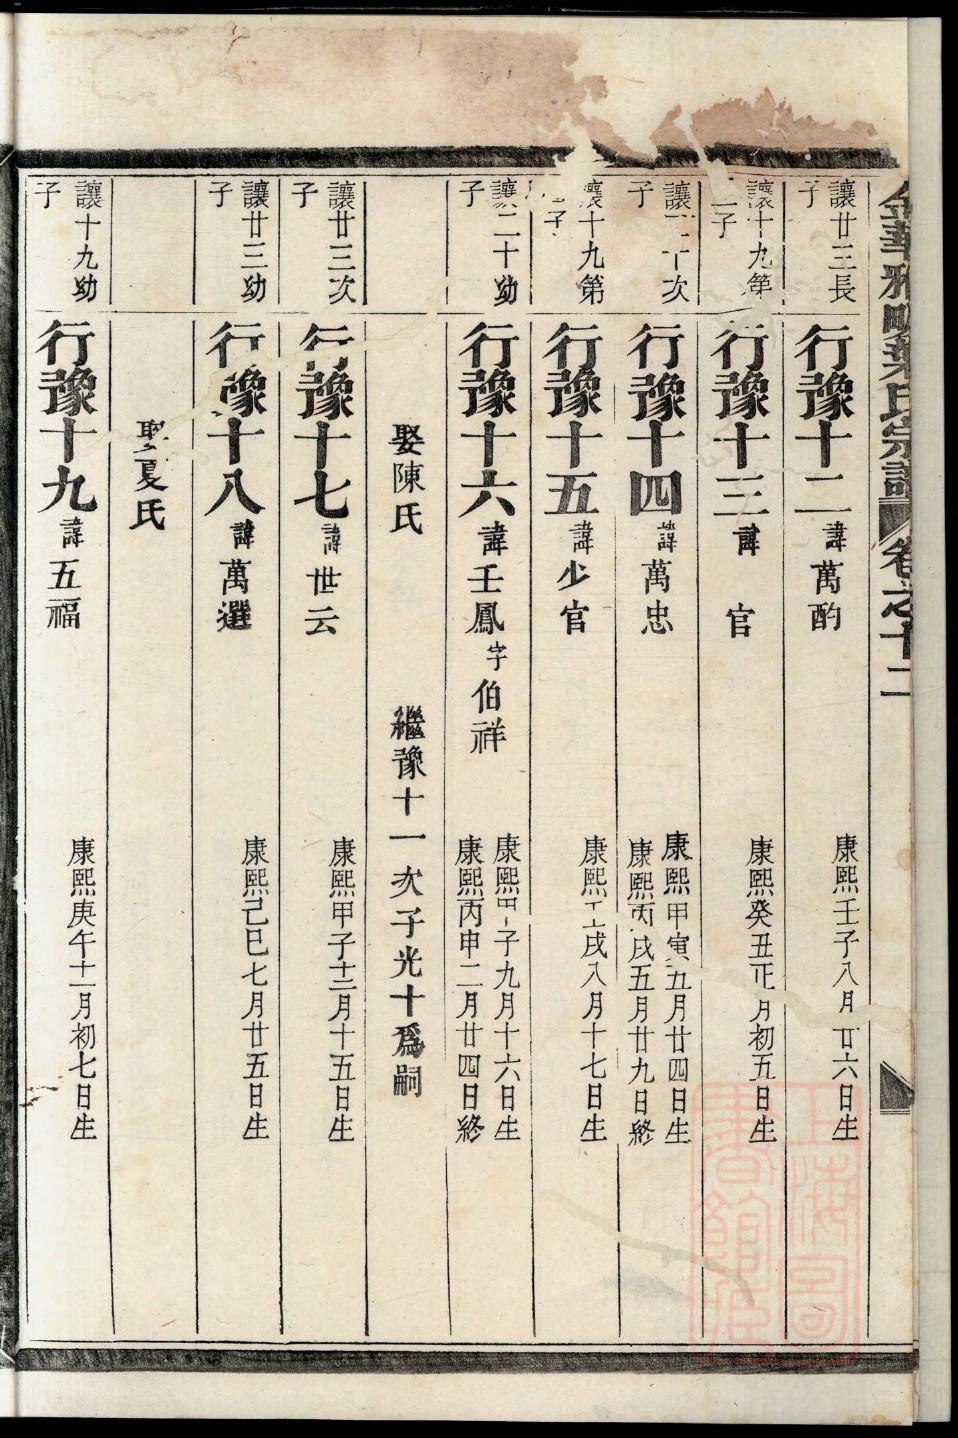 金華雅畈葉氏宗譜 卷之十二
讓廿三長子 行豫十二 諱萬酌 康熙壬子八月廿六日生
讓十九第二子 行豫十三 諱 官 康熙癸丑正月初五日生
讓二十次子 行豫十四 諱萬忠 康熙甲寅五月廿四日生
康熙丙戌五月廿九日終
讓十九第 子 行豫十五 諱少官 康熙 戌八月十七日生
讓二十幼子 行豫十六 諱壬鳳字伯祥 康熙甲子九月十六日生
康熙丙申二月廿四日終
娶陳氏 繼豫十一次子光十爲嗣
讓廿三次子 行豫十七 諱世云 康熙甲子十二月十五日生
讓廿三幼子 行豫十八 諱萬選 康熙己巳七月廿五日生
娶夏氏
讓十九幼子 行豫十九 諱五福 康熙庚午十一月初七日生
上海圖書館藏